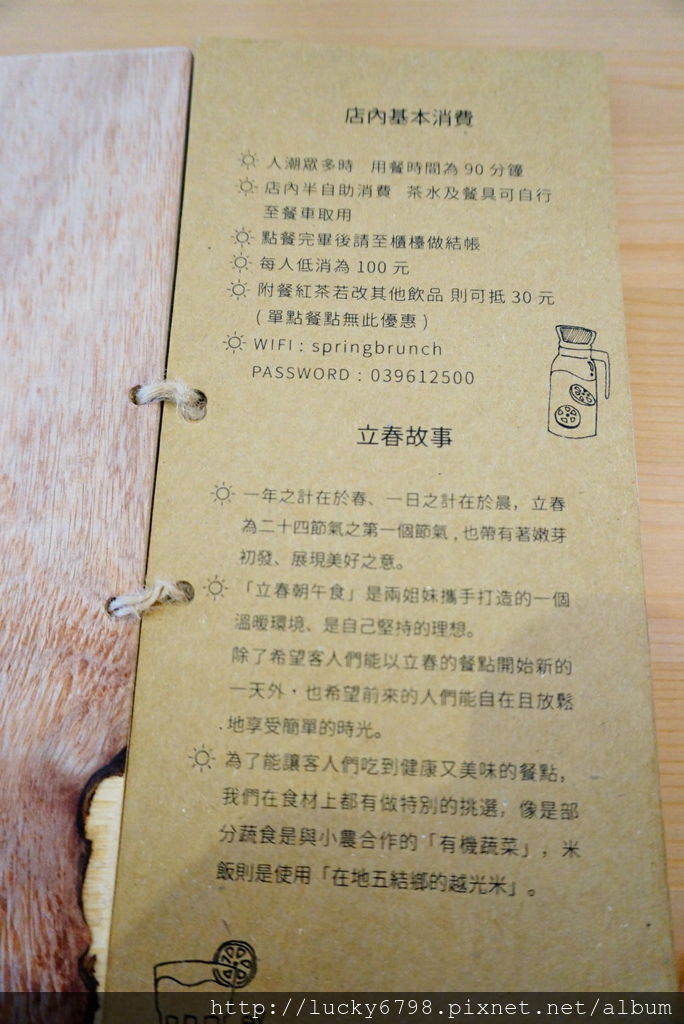 店內基本消費
人潮眾多時 用餐時間為 90 分鐘
店內半自助消費 茶水及餐具可自行
至餐車取用
點餐完畢後請至櫃檯做結帳
每人低消為 100 元
附餐紅茶若改其他飲品 則可抵 30 元
( 單點餐點無此優惠 )
WIFI : springbrunch
PASSWORD : 039612500
立春故事
一年之計在於春、一日之計在於晨，立春
為二十四節氣之第一個節氣 , 也帶有著嫩芽
初發、展現美好之意。
「立春朝午食」是兩姐妹攜手打造的一個
溫暖環境、是自己堅持的理想。
除了希望客人們能以立春的餐點開始新的
一天外，也希望前來的人們能自在且放鬆
地享受簡單的時光。
為了能讓客人們吃到健康又美味的餐點，
我們在食材上都有做特別的挑選，像是部
分蔬食是與小農合作的「有機蔬菜」，米
飯則是使用「在地五結鄉的越光米」。
http://lucky6798.pixnet.net/album